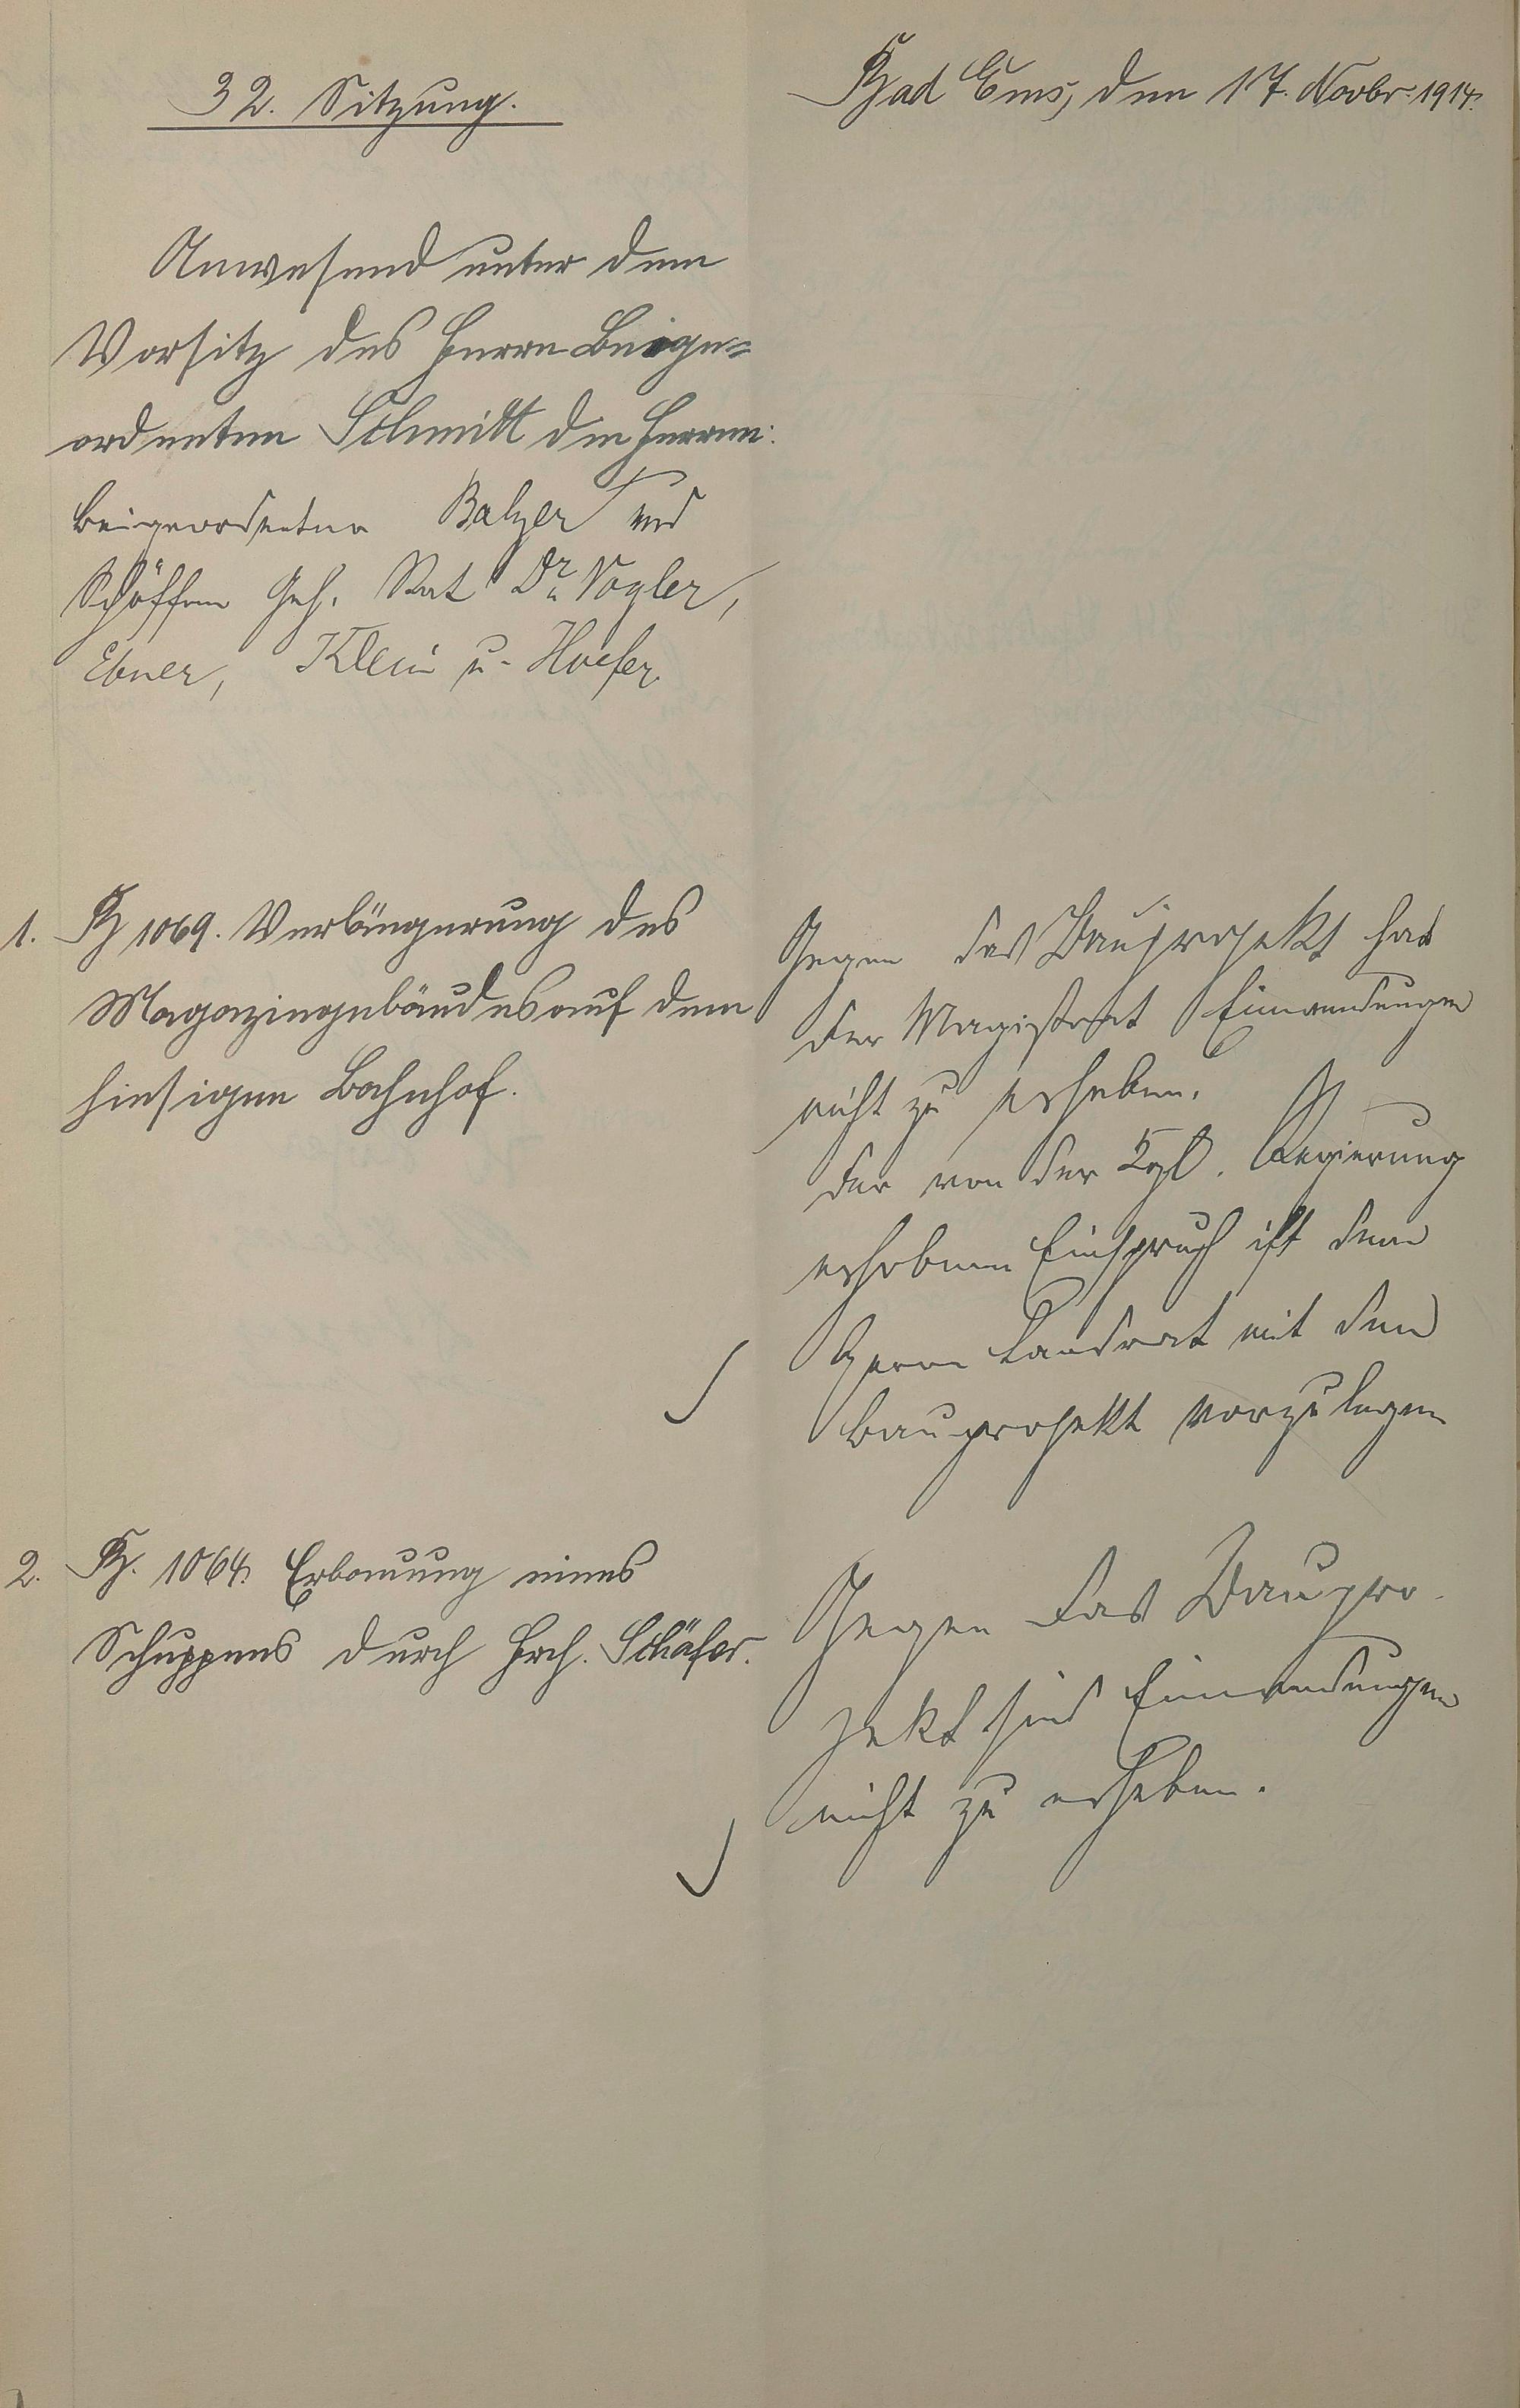 32. Sitzung.
Bad Ems, den 17. Novbr. 1914.
Anwesend unter dem
Vorsitz des Herrn Beige=
ordneten Schmitt die Herren:
Beigeordneter Balzer und
Schöffen Geh. Rat Dr. Vogler,
Ebner, Klein u. Hoefer.
1. B 1069. Verlängerung des
Magazingebäudes auf dem
hiesigen Bahnhof.
Gegen das Bauprojekt hat
der Magistrat Einwendungen
nicht zu erheben.
Der von der Kgl. Regierung
erhobene Einspruch ist dem
Herrn Landrat mit dem
Bauprojekt vorzulegen
2. B. 1064. Erbauung eines
Schuppens durch Hrch. Schäfer.
Gegen das Baupro-
jekt sind Einwendungen
nicht zu erheben.